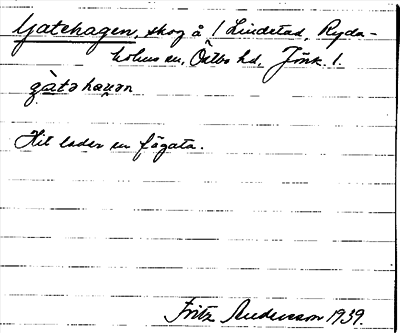 Gatehagen, skog å 1 Lindstad, Ryda-
holms sn, Östbo hd, Jönk. l.
gàtə haγən
Hit leder en fägata.
Fritz Andersson 1939.